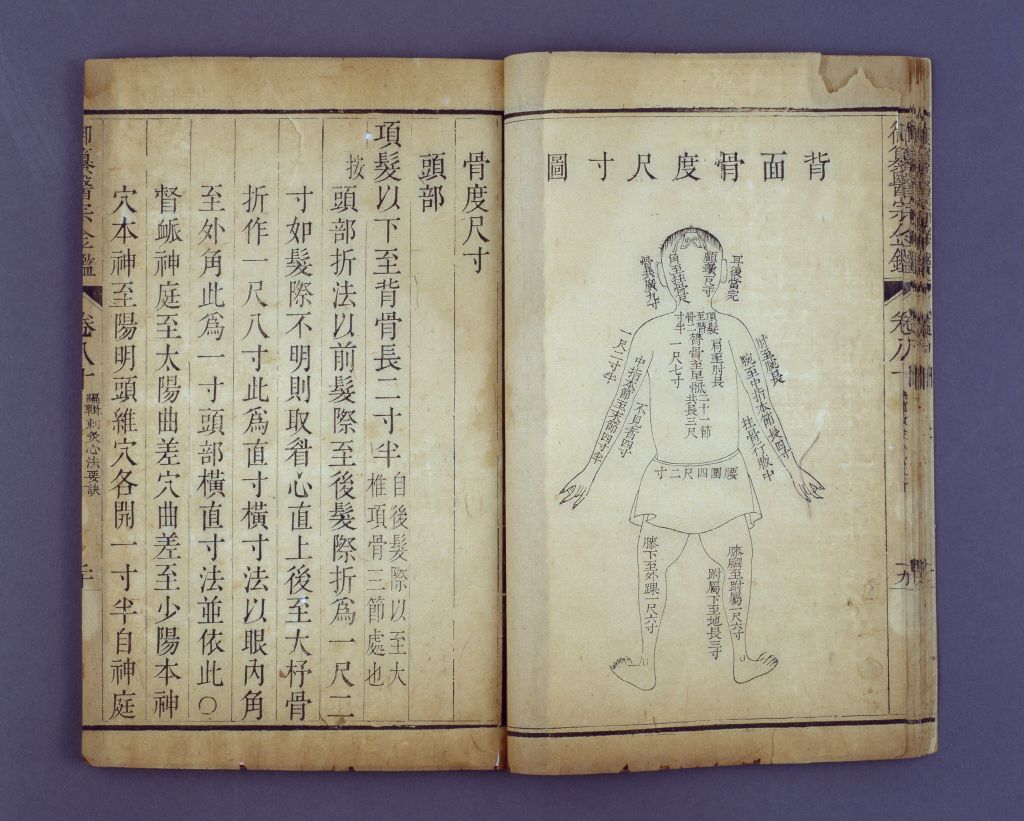 御纂醫宗金鑑
卷八十
背面骨度尺寸圖
耳後當完
骨共廣九寸
角至柱骨長
項髮
至背
骨二
寸半
肩至肘長
一尺七寸
膂骨至尾骶二十一節
共長三尺
肘至腕長
一尺二寸半
腕至中指本節長四寸
中指本節至末節四寸半
柱骨行腋中
不見者四寸
腰圍四尺二寸
膝膕至跗屬一尺六寸
跗屬下至地長三寸
膝下至外踝一尺六寸
骨度尺寸
頭部
項髮以下至背骨長二寸半
自後髮際以至大
椎項骨三節處也
按頭部折法以前髮際至後髮際折爲一尺二
寸如髮際不明則取眉心直上後至大杼骨
折作一尺八寸此爲直寸橫寸法以眼內角
至外角此爲一寸頭部橫直寸法並依此〇
督衇神庭至太陽曲差穴曲差至少陽本神
穴本神至陽明頭維穴各開一寸半自神庭
御纂醫宗金鑑
卷八十
編輯刺灸心法要訣